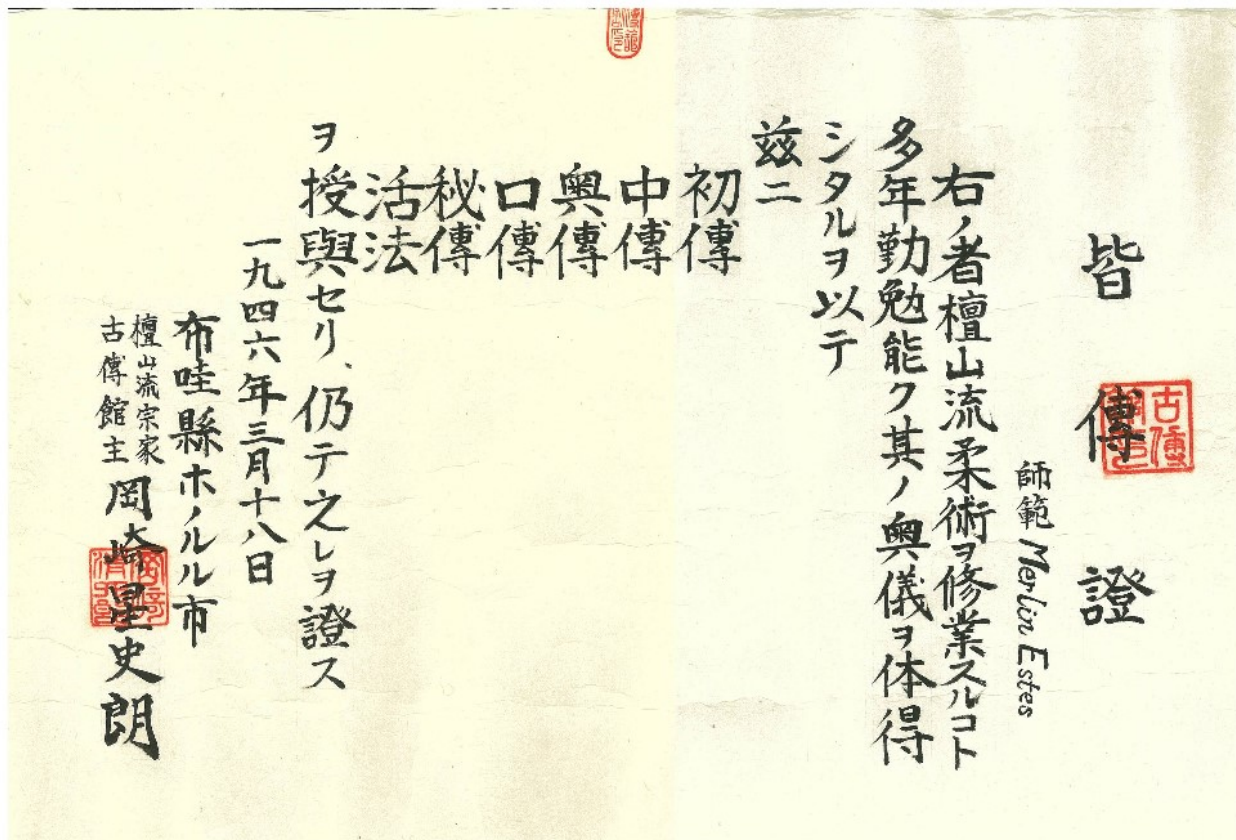 皆傳證
師範 Merlin Estes
右ノ者檀山流柔術ヲ修業スルコト
多年勤勉能ク其ノ奥儀ヲ体得
シタルヲ以テ
茲ニ
初傳
中傳
奥傳
口傳
秘傳
活法
ヲ授與セリ、仍テ之レヲ證ス
一九四六年三月十八日
布哇縣ホノルル市
檀山流宗家
古傳館主
岡崎星史朗
古傳